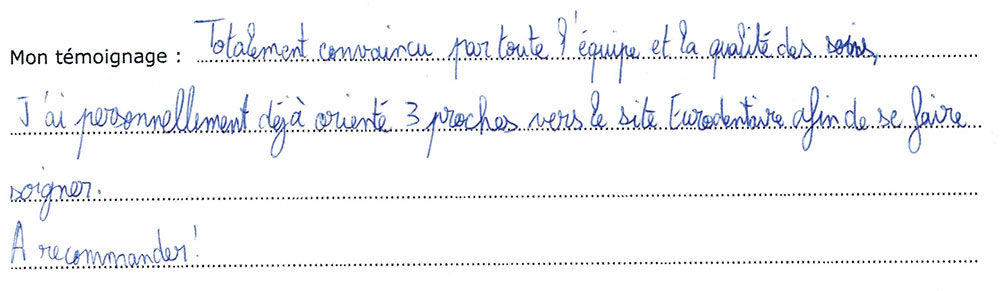 Mon témoignage : Totalement convaincu par toute l'équipe et la qualité des soins,
J'ai personnellement déjà orienté 3 proches vers le site Eurodentaire afin de se faire
soigner.
A recommander!